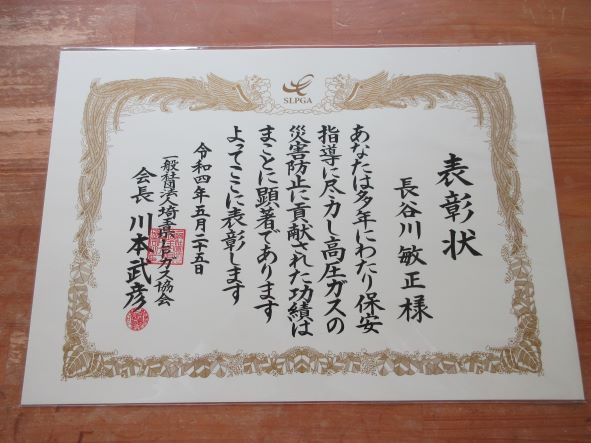 SLPGA
表彰状
長谷川敏正様
あなたは多年にわたり保安
指導に尽力し高圧ガスの
災害防止に貢献された功績は
まことに顕著であります
よってここに表彰します
令和四年五月二十五日
一般社団法人埼玉県LPガス協会
会長 川本武彦